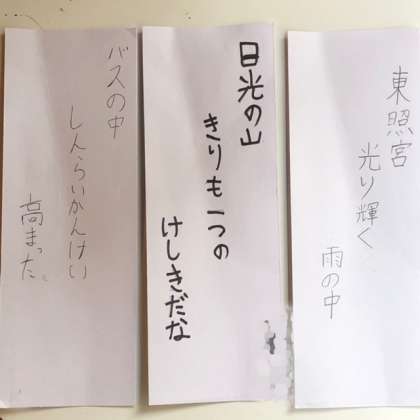 東照宮
光り輝く
雨の中
日光の山
きりも一つの
けしきだな
バスの中
しんらいかんけい
高まった。